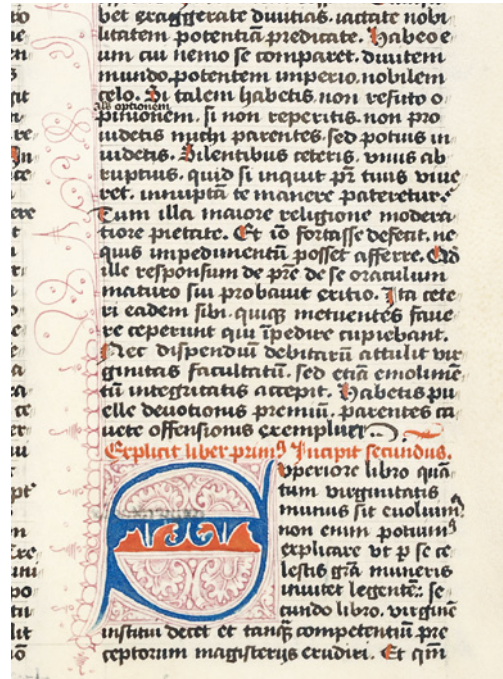 bet exaggerate diuitias. iactate nobi
litatem potentiā predicate. Habeo e
um cui nemo se comparet. diuitem
mundo. potentem imperio. nobilem
celo. Si talem habetis. non refuto o
als optionem
pinionem. si non reperitis. non pro
uidetis michi parentes. sed potius in
uidetis. Silentibus ceteris. vnus ab
ruptius. quid si inquit pr̄ tuus viue
ret. innuptā te manere pateretur.
Tum illa maiore religione modera
tiore pietate. Et iō fortasse defecit. ne
quis impedimentū posset afferre. Qd̄
ille responsum de pr̄e de se oraculum
maturo sui probauit exitio. Ita cete
ri eadem sibi quiqꝫ metuentes faue
re ceperunt qui īpedire cupiebant.
Nec dispendiū debitarū attulit vir
ginitas facultatū. sed etiā emolumē
tū integritatis accepit. Habetis pu
elle deuotionis premiū. parentes ca
uete offensionis exemplum.
Explicit liber primꝰ Incipit secundus.
Superiore libro quā
tum virginitatis
munus sit euoluimꝰ
non enim potuimꝰ
explicare vt p se ce
lestis gr̄a muneris
inuitet legentē: se
cundo libro. virginē
institui decet et tanqꝫ competentiū pre
ceptorum magisterijs erudiri. Et qm̄